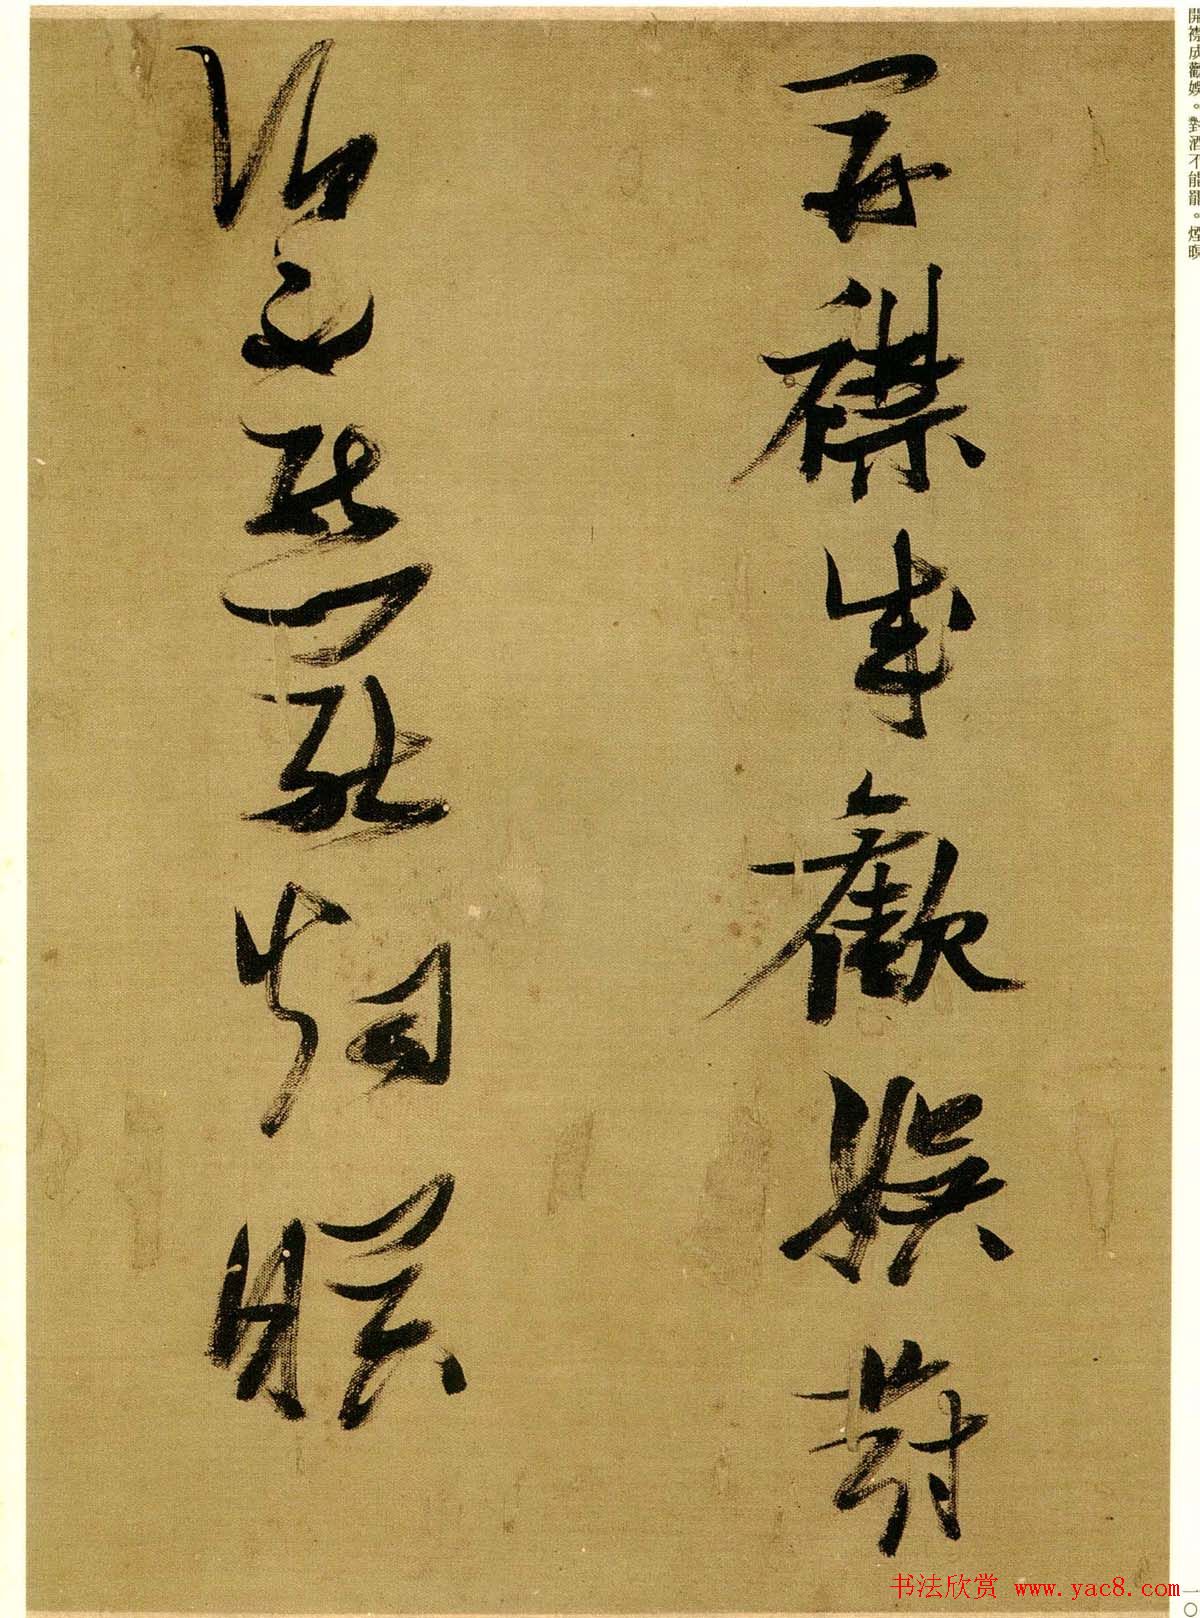 開襟成歡娛對
酒不能罷煙暝
開襟成歡娛。對酒不能罷。煙暝
一〇
书法欣赏 www.yac8.com